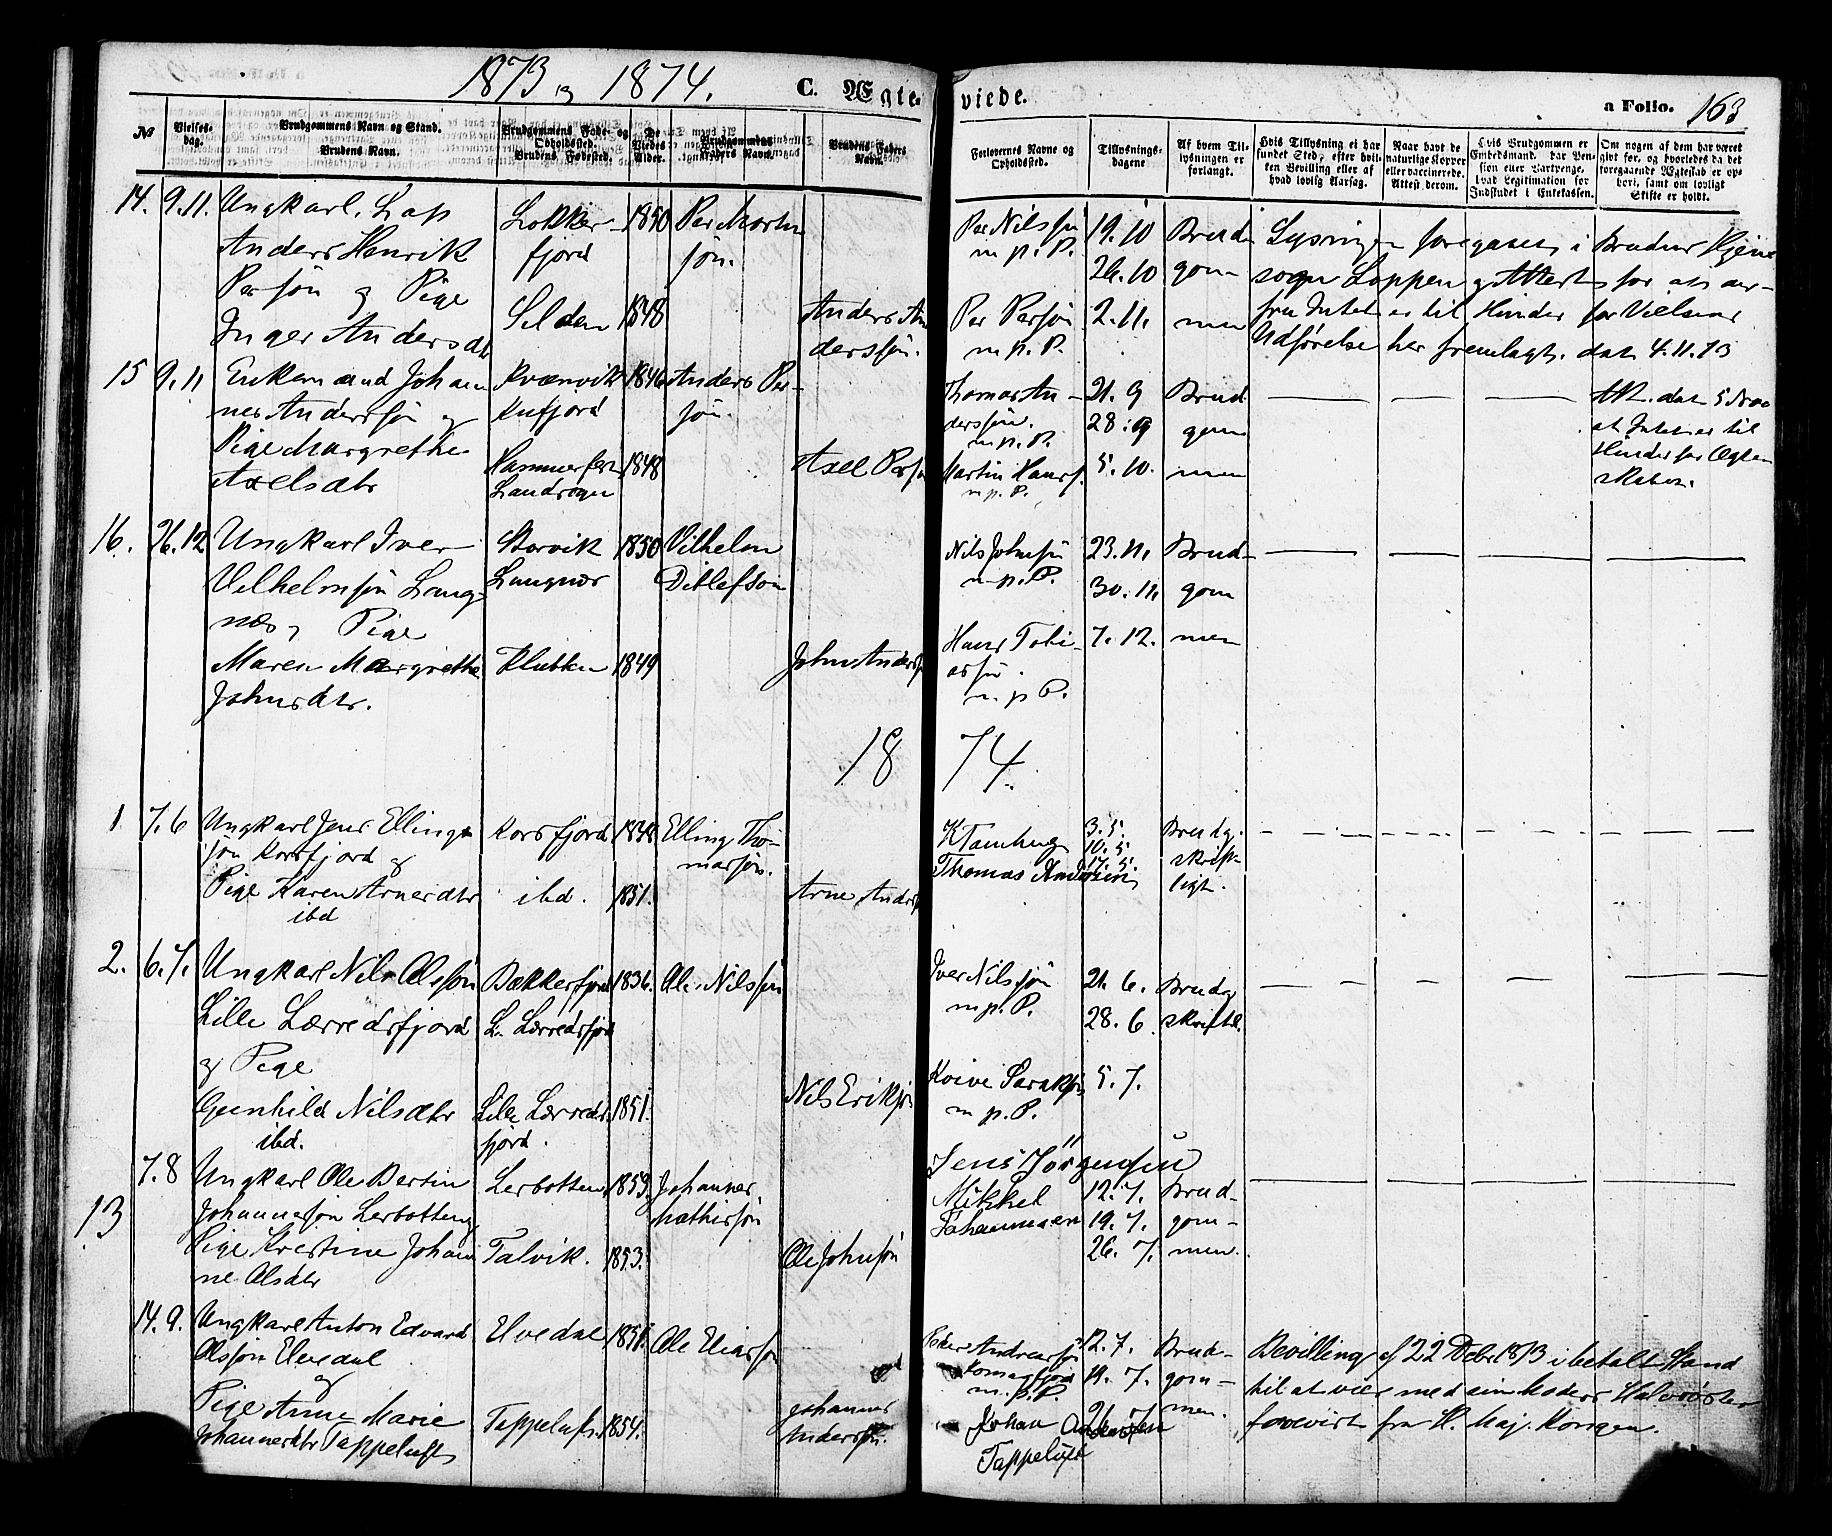 1873 og 1874.
C. Ægte-
viede.
a Folio. 163
No
Vielses-
dag.
Brudgommens Navn og Stand.
Brudens Navn.
Brudgommens Føde- og
Opholdssted.
Brudens Fødested.
De
Viedes
Alder.
Brudgommens
Faders Navn.
Brudens Faders
Navn.
Forlovernes Navne og
Opholdssted.
Tillysnings-
dagene
Af hvem Til-
lysningen er
forlangt.
Hvis Tillysning ei har
fundet Sted, efter hvil-
ken Bevilling eller af
hvad lovlig Aarsag.
Naar havt de
naturlige Kopper
eller vaccinerede.
Attest derom.
Hvis Brudgommen er
Embedsmand, har Pen-
sion eller Vartpenge,
hvad Legitimation for
Indskudet i Enkekassen.
Om nogen af dem har været
gift før, og hvorledes da det
foregaaende Ægteskab er op-
hørt, samt om lovligt
Skifte er holdt.
14. 9.11. Ungkarl, Lap
Anders Henrik
Persøn og Pige
Inger Andersdtr
Lokker-
fjord
Selden
1850
1848
Per Morten
søn.
Anders An
derssøn.
Per Nilssøn
m. p. P.
Per Persøn
m. p. P.
19. 10
26. 10
2. 11.
Brud
gom-
men
Lysningen foregaaet i Brudens Hjem
sogn Loppen og Attest for at der-
fra Intet er til Hinder for Vielsens
Udførelse her fremlagt. dat. 4.11.73
15 9.11 Enkemand Johan
nes Anderssøn og
Pige Margrethe
Axelsdtr
Kvænvik
Rufjord
Hammerfest
Landsogn
1846
1848
Anders Per-
søn.
Axel Persøn
Thomas An-
derssøn.
m. p. P.
Martin Hanss.
m. p. P.
21. 9
28. 9
5. 10.
Brud
gom
men
Att. dat. 5 Nov
at Intet er til
Hinder for Ægte
skabet.
16. 26.12 Ungkarl Iver
Vilhelmsøn Lang-
næs, Pige
Maren Margrethe
Johnsdtr.
Storvik
Langnæs
Klubben
1850
1849
Vilhelm
Ditlefson
John Anderss
Nils Johnsøn
m. p. P.
Hans Tobi-
assøn.
m. p. P.
23. 11.
30. 11.
7. 12.
Brud-
gom
men
18 74.
1 7.6 Ungkarl Jens Ellings
søn Korsfjord og
Pige Karen Arnesdtr
ibd
Korsfjord
ibd.
1848
1851.
Elling Tho-
massøn.
Arne Anders
K Tamburg
Thomas Andersen
3. 5.
10. 5
17. 5.
Brudg.
skrift-
ligt.
2. 6.7. Ungkarl Nils Olssøn
Lille Lærredsfjord
og Pige
Gunhild Nilsdtr
ibd.
Bekkerfjord
L. Lærredsfjord
Lille Lærreds
fjord.
1836.
1851.
Ole Nilssøn
Nils Erikssøn
Iver Nilssøn
m. p. P.
m. p. P.
21. 6.
28. 6.
5. 7.
Brudg
skriftl.
13 7.8 Ungkarl Ole Bertin
Johannesøn Lerbotten og
Pige Kristine Johan
ne Olsdtr
Lerbotten
Talvik.
1853.
1853.
Johannes
Mathissøn
Ole Johnsøn
Jens Jørgensen
Mikkel
Johannesen
12. 7.
19. 7.
26. 7.
Brud-
gom-
men.
14. 9. Ungkarl Anton Edvard
Olssøn Elvedal
og
Pige Anne Marie
Johannesdtr Tappeluft
Elvedal
Tappeluft.
1851.
1854.
Ole Eliassøn
Johannes
Anderssøn.
Peder Andreassøn
Komagfjord
m. p. P.
Johan Andersen
Tappeluft
12. 7.
19. 7.
Brud-
gom-
men.
Bevilling af 22 Debr 1873 i betalt Stand
til at vies med sin Moders Halvsøster
forevist fra H. Maj. Kongen.